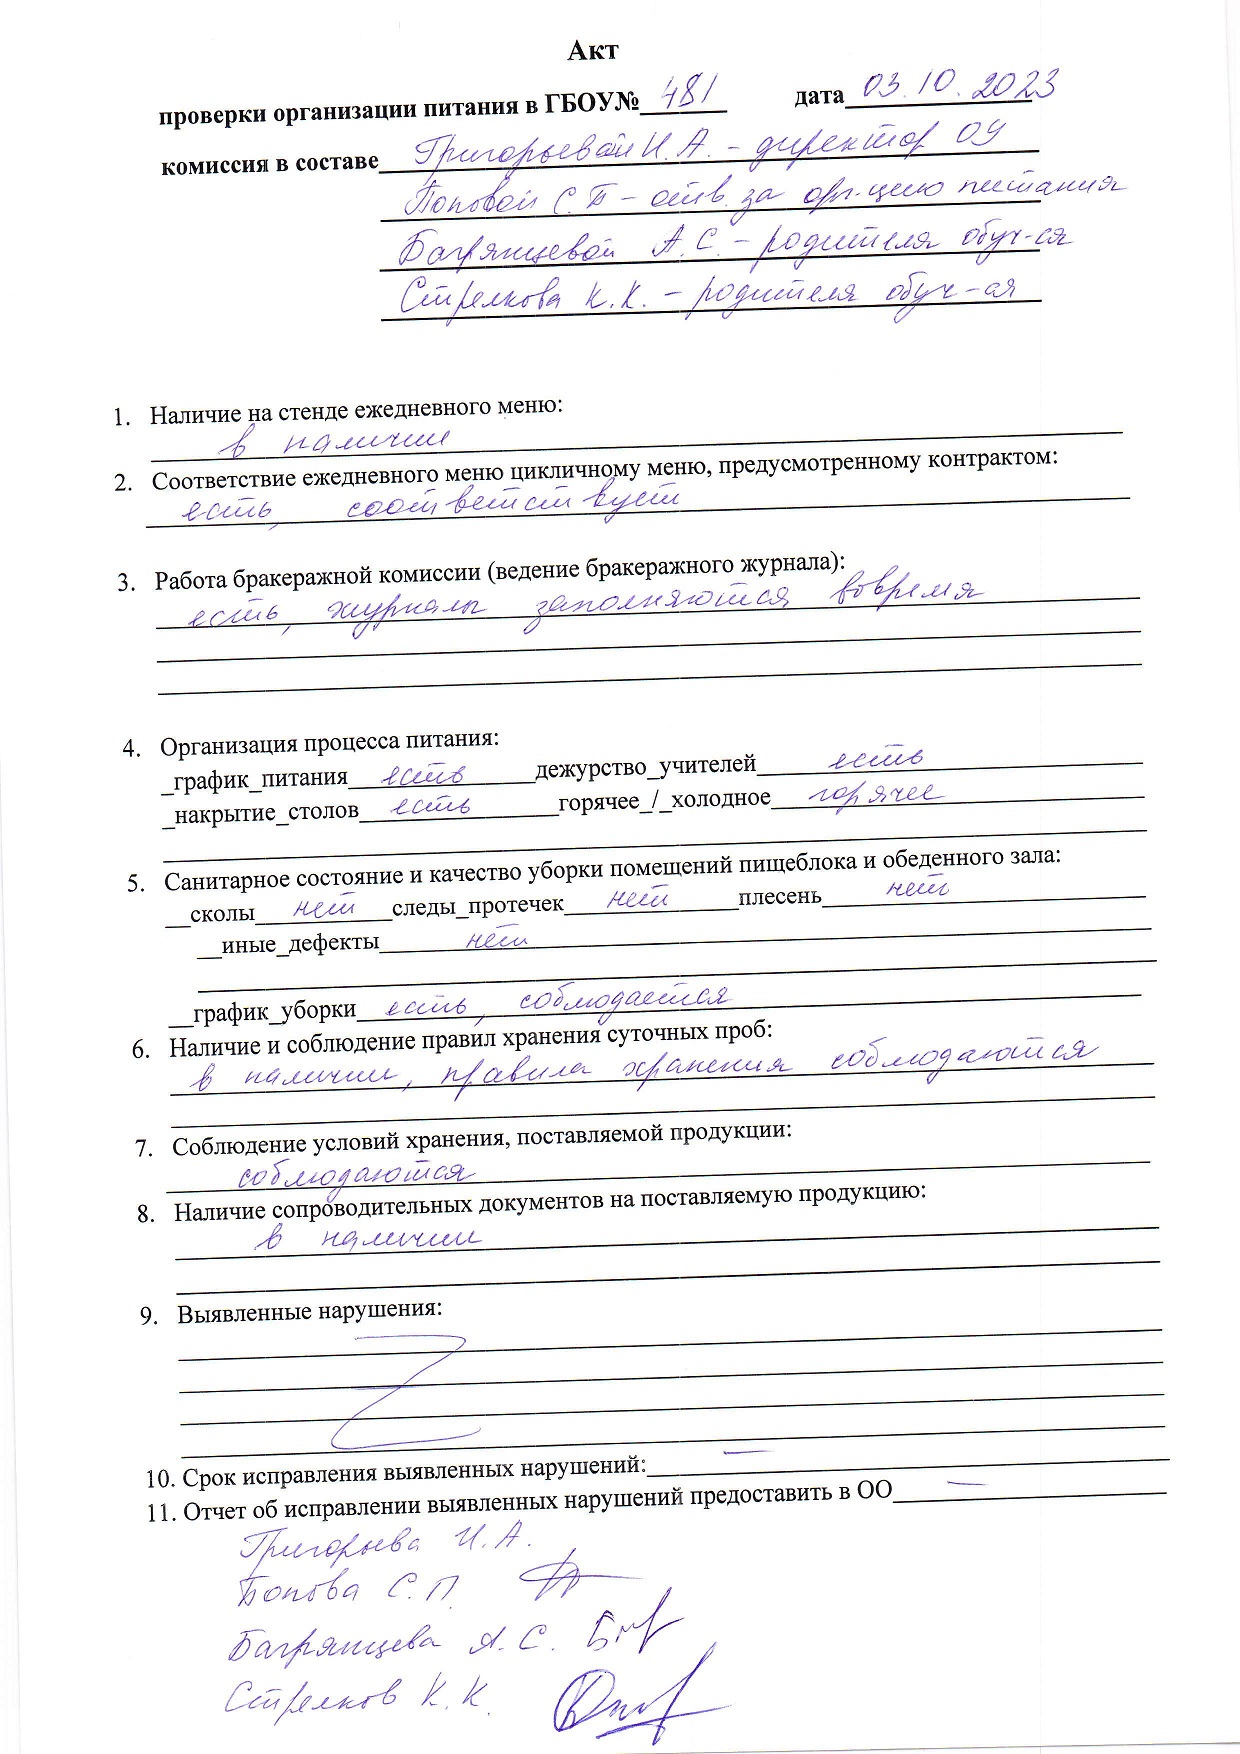 Акт
проверки организации питания в ГБОУ№ 481 дата 03.10.2023
комиссия в составе Григорьевой И.А. – директор ОУ
Поповой С.Б – отв. за орг-цию питания
Багрянцевой А.С. – родителя обуч-ся
Стрелкова К.К. – родителя обуч-ся
1. Наличие на стенде ежедневного меню:
в наличии
2. Соответствие ежедневного меню цикличному меню, предусмотренному контрактом:
есть, соответствует
3. Работа бракеражной комиссии (ведение бракеражного журнала):
есть, журналы заполняются вовремя
4. Организация процесса питания:
_график_питания есть дежурство_учителей есть
_накрытие_столов есть горячее_/_холодное горячее
5. Санитарное состояние и качество уборки помещений пищеблока и обеденного зала:
__сколы нет следы_протечек нет плесень нет
__иные_дефекты нет
__график_уборки есть, соблюдается
6. Наличие и соблюдение правил хранения суточных проб:
в наличии, правила хранения соблюдаются
7. Соблюдение условий хранения, поставляемой продукции:
соблюдаются
8. Наличие сопроводительных документов на поставляемую продукцию:
в наличии
9. Выявленные нарушения:
10. Срок исправления выявленных нарушений: —
11. Отчет об исправлении выявленных нарушений предоставить в ОО —
Григорьева И.А.
Бопова С.П.
Багрянцева А.С.
Стрелков К.К.